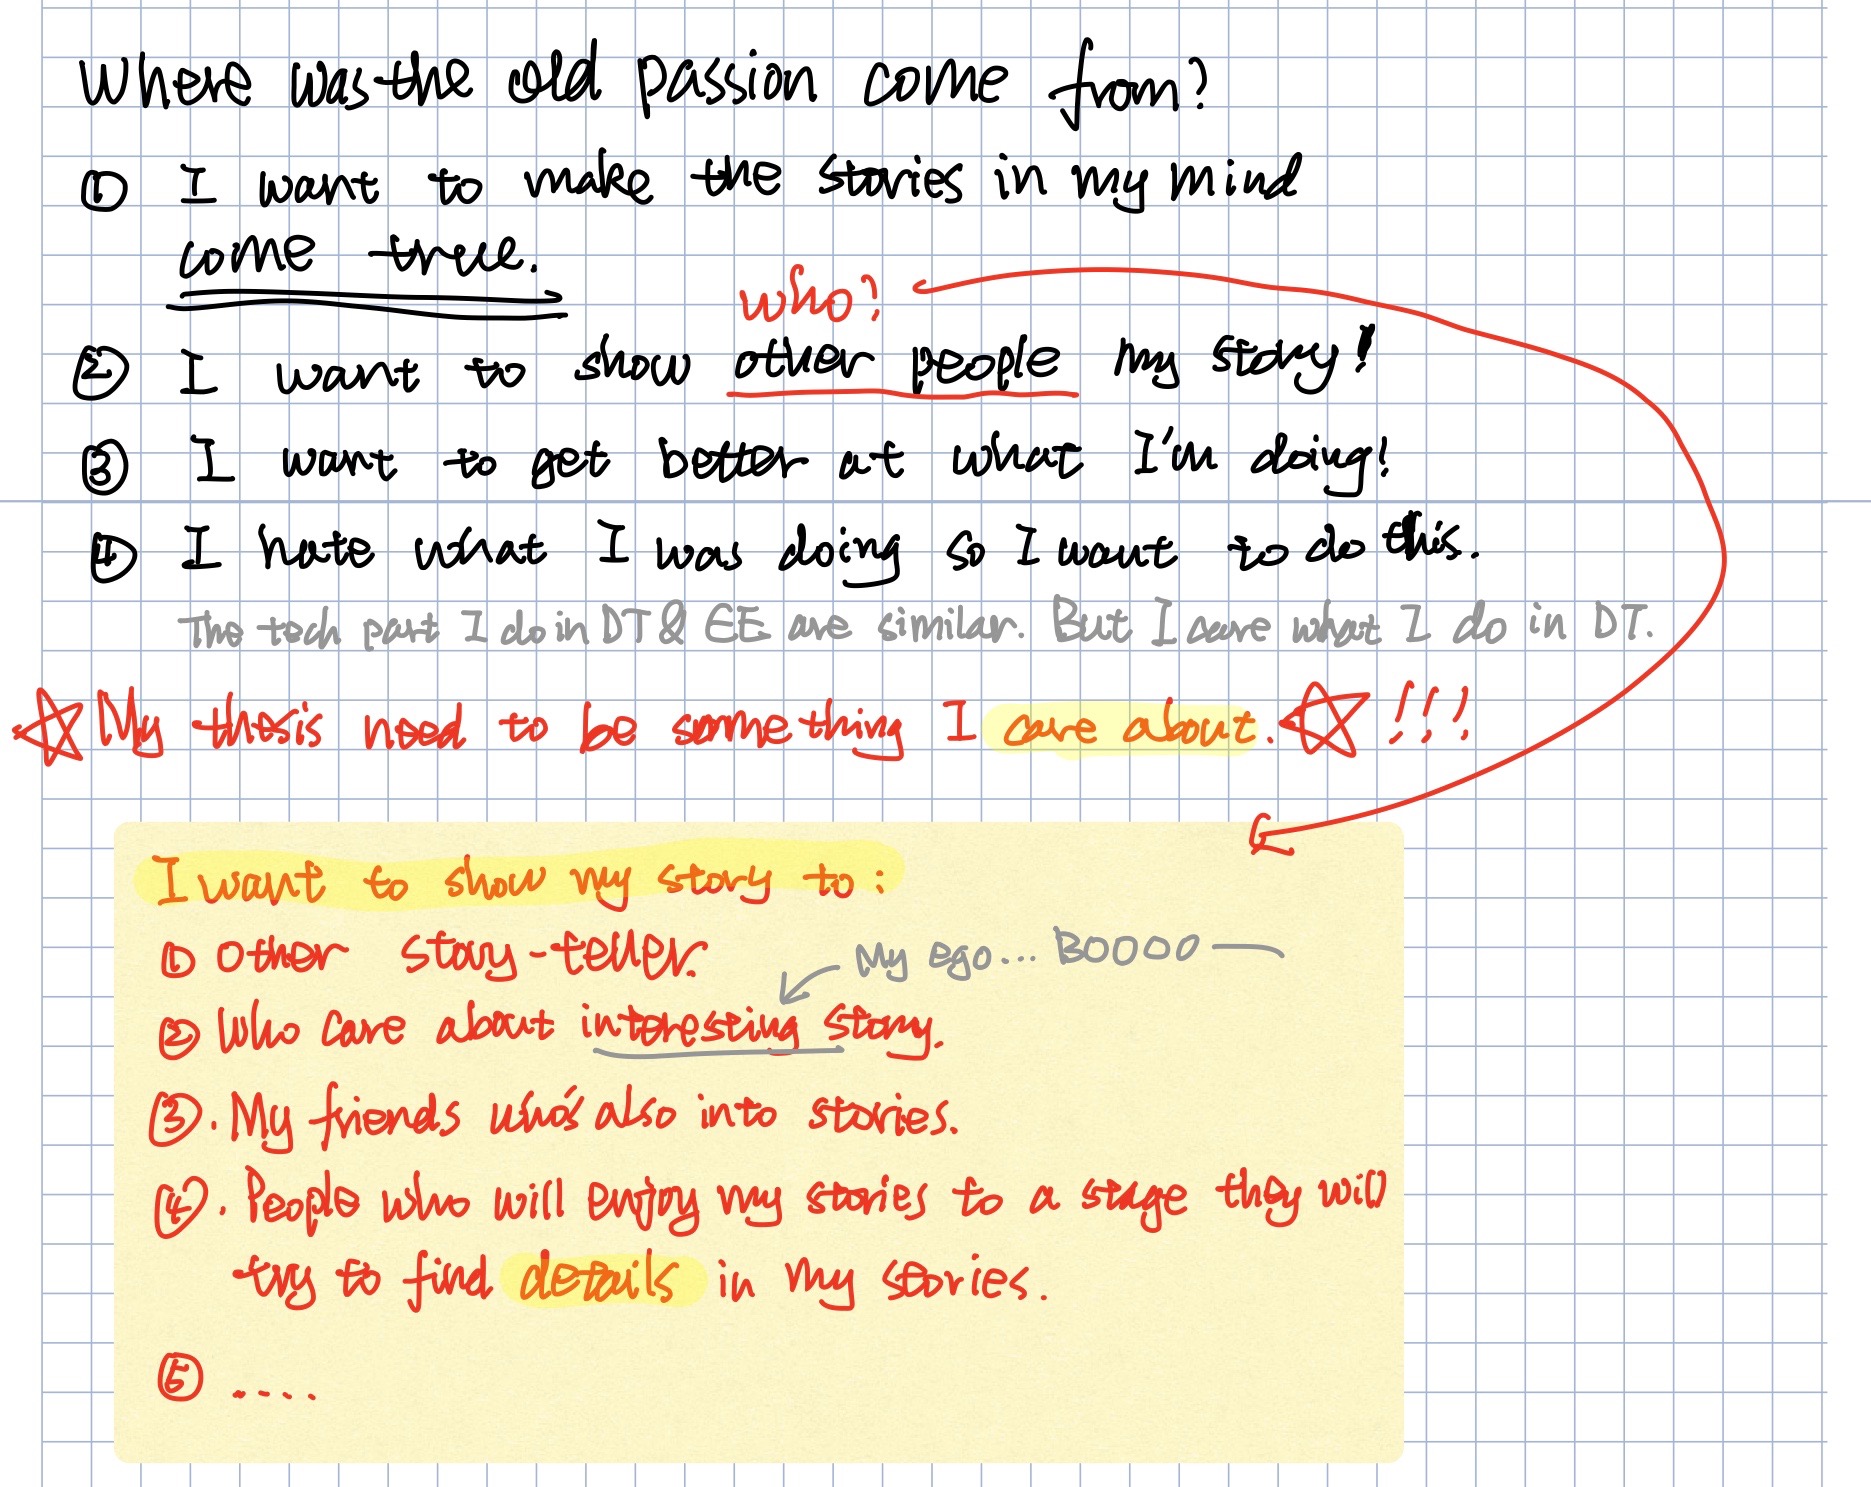 Where was the old passion come from?
① I want to make the stories in my mind
come true.
who?
② I want to show other people my story!
③ I want to get better at what I'm doing!
④ I hate what I was doing so I want to do this.
The tech part I do in DT & EE are similar. But I care what I do in DT.
☆ My thesis need to be something I care about. ☆ !!!
I want to show my story to:
① Other story-teller.
My ego... BOOOO —
② Who care about interesting story.
③. My friends who's also into stories.
④. People who will enjoy my stories to a stage they will
try to find details in my stories.
⑤ ....